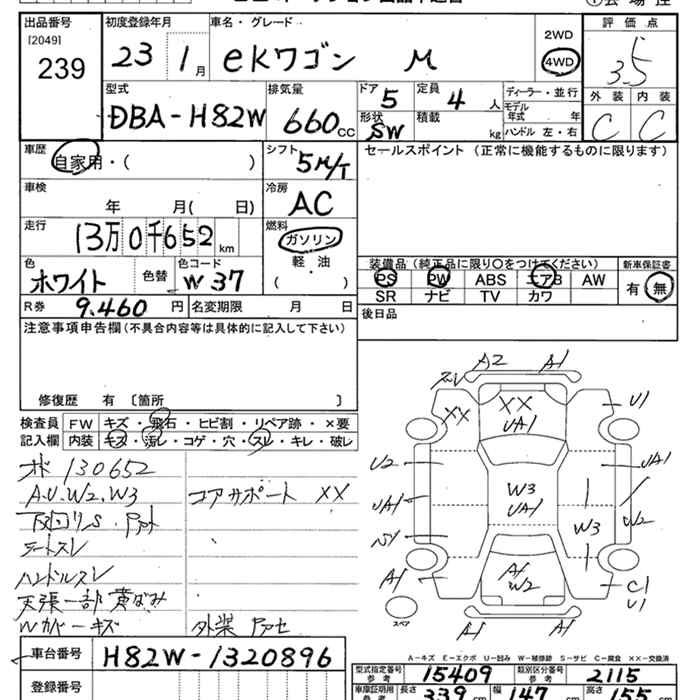 出品番号 初度登録年月 車名・グレード 評価点
[2049]
239
23 1月 eKワゴン M
2WD
4WD
3.5
外装 内装
C C
型式 排気量 ドア 定員 ディーラー・並行
DBA-H82W 660cc 5 4人
形状 積載 モデル年式 年
SW kg ハンドル 左・右
車歴 シフト セールスポイント (正常に機能するものに限ります)
自家用・( ) 5M/T
車検 冷房
年 月( 日) AC
走行 燃料
13万0千652km ガソリン
軽・油
( )
色 色替 色コード
ホワイト W37
装備品 (純正品に限り○をつけてください) 新車保証書
PS PW ABS エアB AW 有 無
SR ナビ TV カワ
R券 9.460円 名変期限 月 日
後日品
注意事項申告欄(不具合内容等は具体的に記入して下さい)
修復歴 有 〔箇所 〕
検査員 FW キズ・飛石・ヒビ割・リペア跡・×要
記入欄 内装 キズ・汚レ・コゲ・穴・スレ・キレ・破レ
130652
A.U.W2.W3 コアサポート XX
下回りS.
シートスレ
ハンドルスレ
天張一部黄ばみ
キズ 外装
A2 A1
XX XX U1
UA1
U2 UA1
UA1 W3 UA1 W3 W2
A1 A1 W2 C1 U1
スペア A1 A1
A-キズ E-エクボ U-凹み W-補修跡 S-サビ C-腐食 XX-交換済
車台番号 H82W-1320896
型式指定番号 15409 類別区分番号 2115
登録番号
長さ 339 cm 幅 147 cm 高さ 155 cm